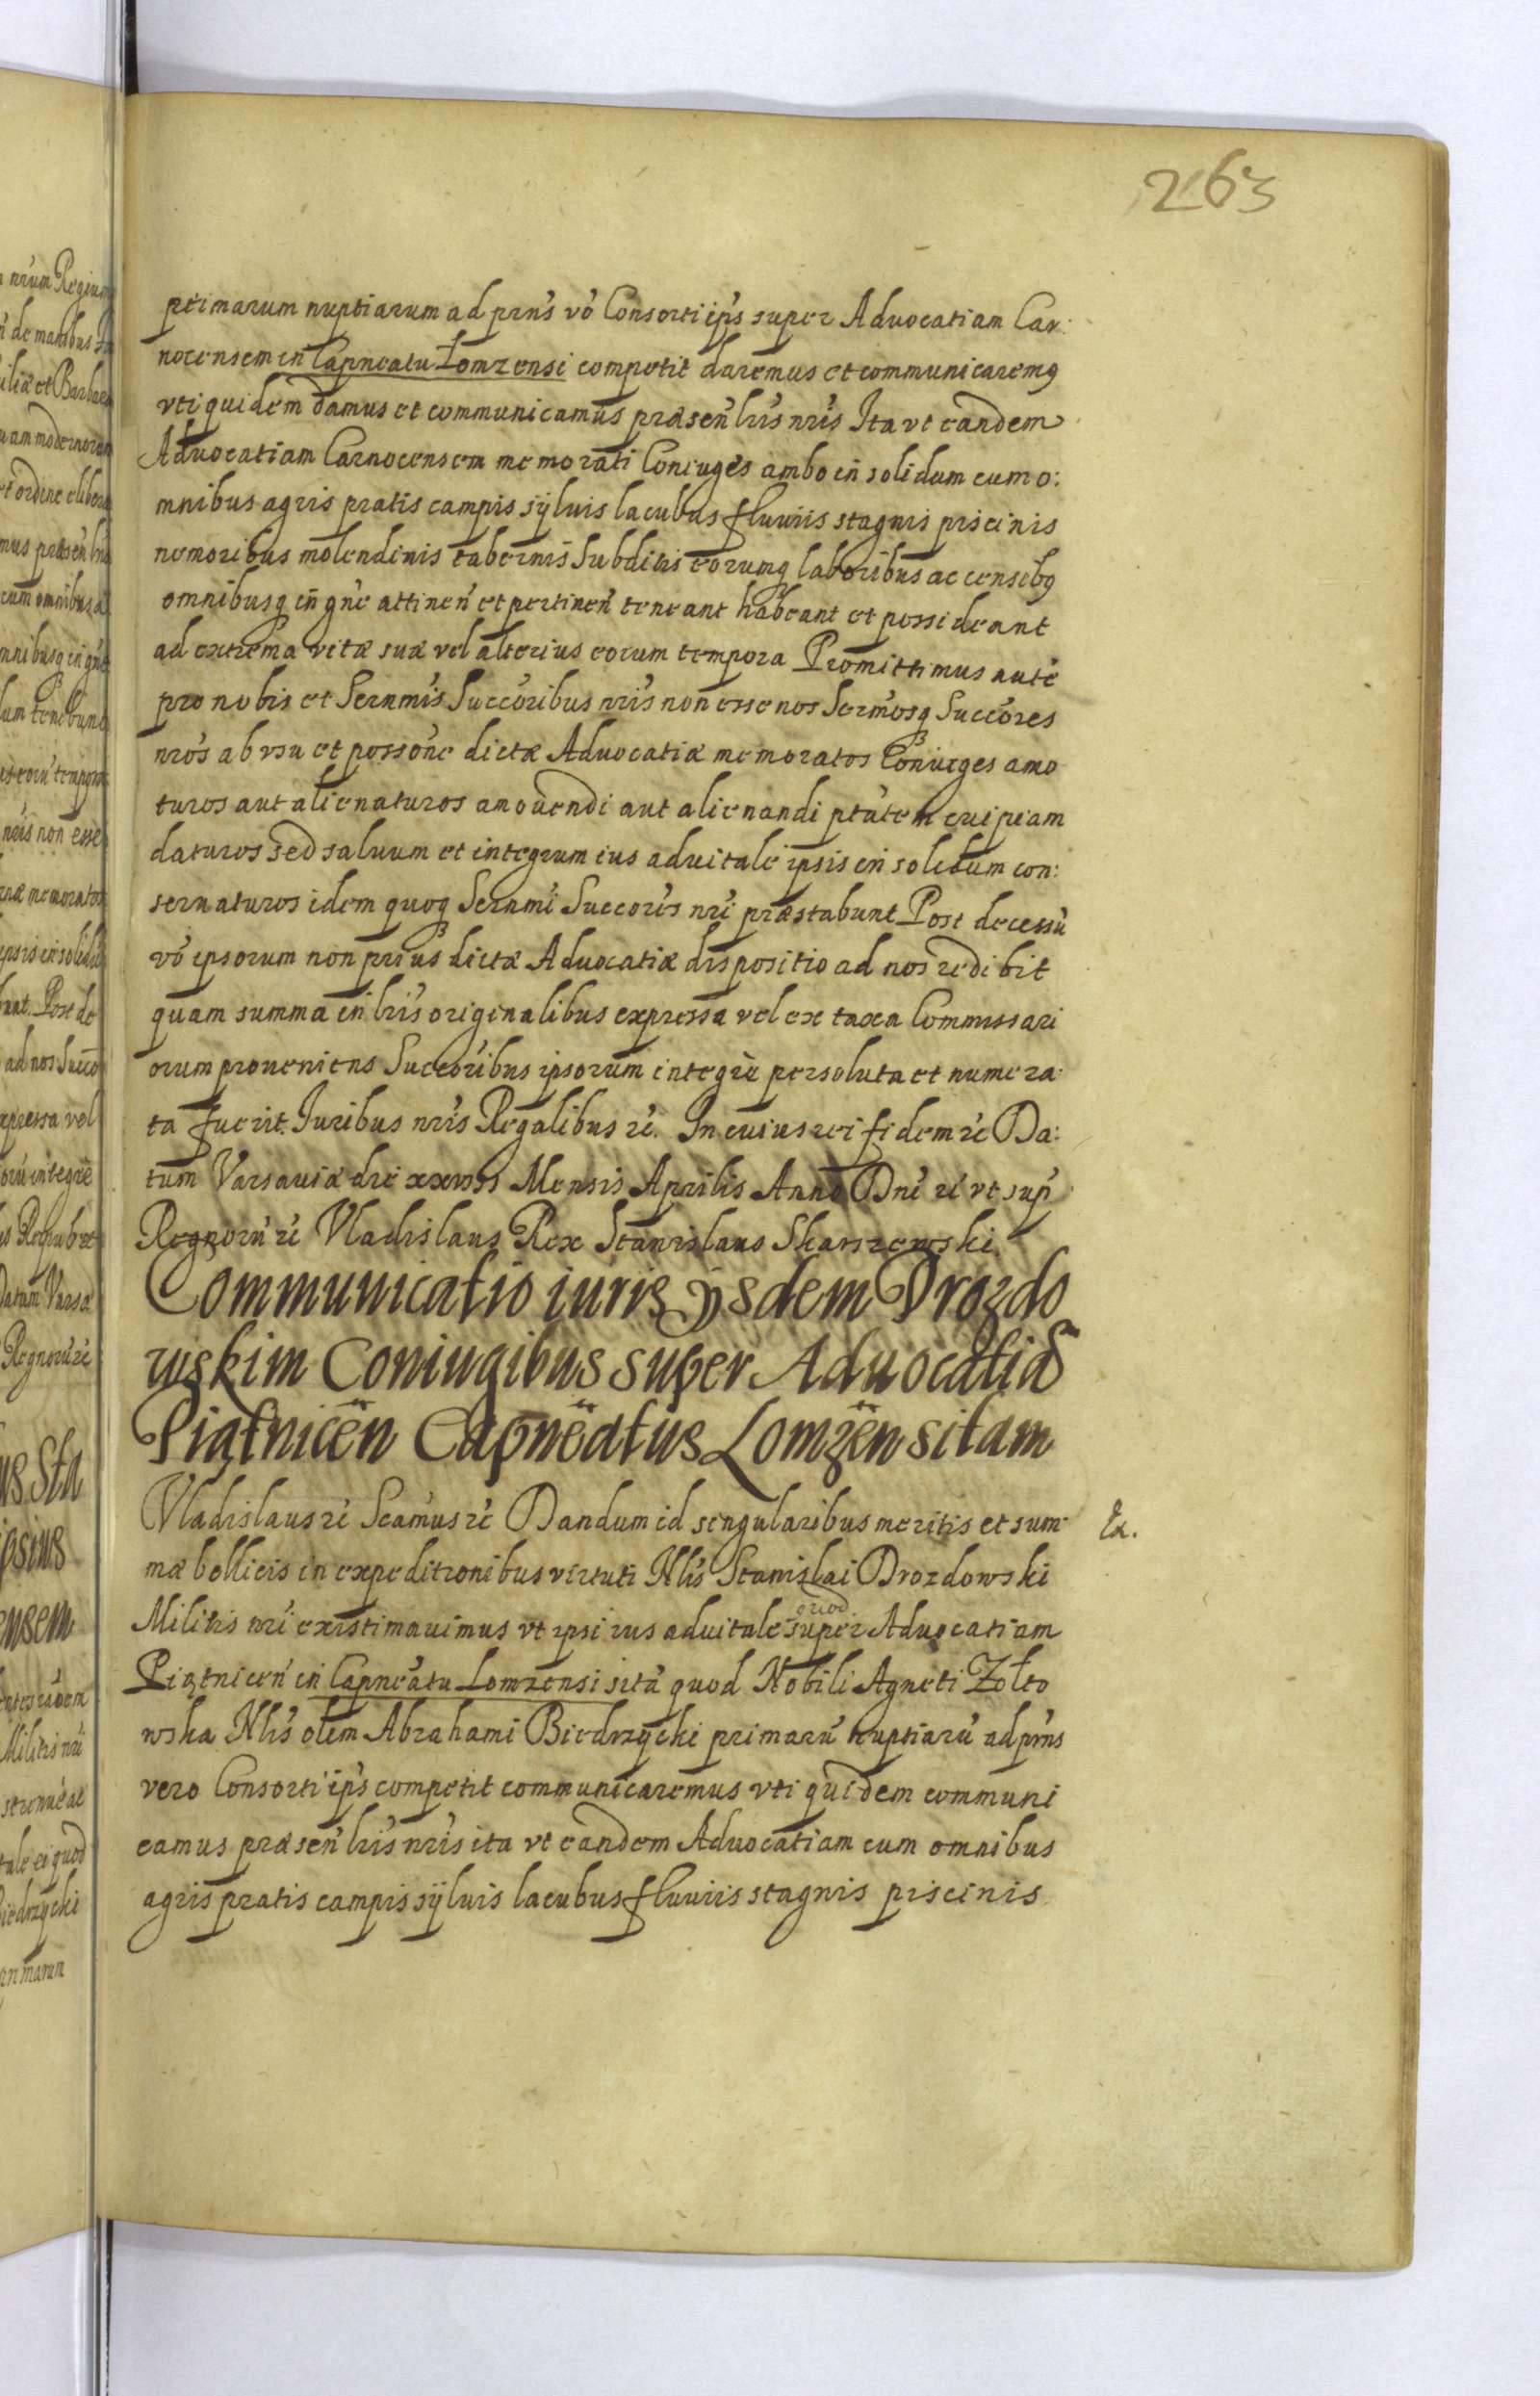 263
primarum nuptiarum ad prn's vo' Consorti ip's super Advocatiam Car:
nocensem in Capneatu Lomzensi competit daremus et communicaremq
vti quidem damus et communicamus præsen' lris nris Ita vt eandem
Advocatiam Carnocensem memorati Coniuges ambo in solidum cum o:
mnibus agris pratis campis sÿluis lacubus fluuiis stagnis piscinis
nemoribus molendinis tabernis Subditis eorumq laboribus ac censibq
omnibusq in gn'e attinen' et pertinen' teneant habeant et possideant
ad extrema vitæ suæ vel alterius eorum tempora Promittimus aute'
pro nobis et Sernmis Succoribus nris non esse nos Sermosq Succores
nros ab vsu et possone dictæ Advocatiæ memoratos Coniuges amo
turos aut alienaturos amouendi aut alienandi ptatem cuipiam
daturos sed saluum et integrum ius aduitale ipsis in solidum con:
seruaturos idem quoq Sernmi Succoris nri præstabunt Post decessu'
vo' ipsorum non prius dictæ Advocatiæ dispositio ad nos redibit
quam summa in lris originalibus expressa vel ex taxa Commissari
orum proueniens Succoribus ipsorum integre persoluta et numera:
ta fuerit. Iuribus nris Regalibus rc. In cuius rei fidem rc Da:
tum Varsauiæ die xxviii Mensis Aprilis Anno Dni rc vt sup'
Regnoru' rc Vladislaus Rex Stanislaus Skarszewski.
Communicatio iuris ijsdem Drozdo
wskim Coniugibus super Aduocatia~
Piątnicen Capneatus Lomzen sitam
Vladislaus rc Scamus rc Dandum id singularibus meritis et sum
mæ bellicis in expeditionibus virtuti Nlis Stanislai Drozdowski
Ex.
quod
Militis nri existimauimus vt ipsi ius aduitale super Advocatiam
Piątnicen' in Capneatu Lomzensi sita' quod Nobili Agneti Zołto
wska Nlis olim Abrahami Biedrzycki primaru' nuptiaru' ad prns
vero Consorti ip's competit communicaremus vti quidem communi
camus præsen' lris nris ita vt eandem Advocatiam cum omnibus
agris pratis campis sÿluis lacubus fluuiis stagnis piscinis